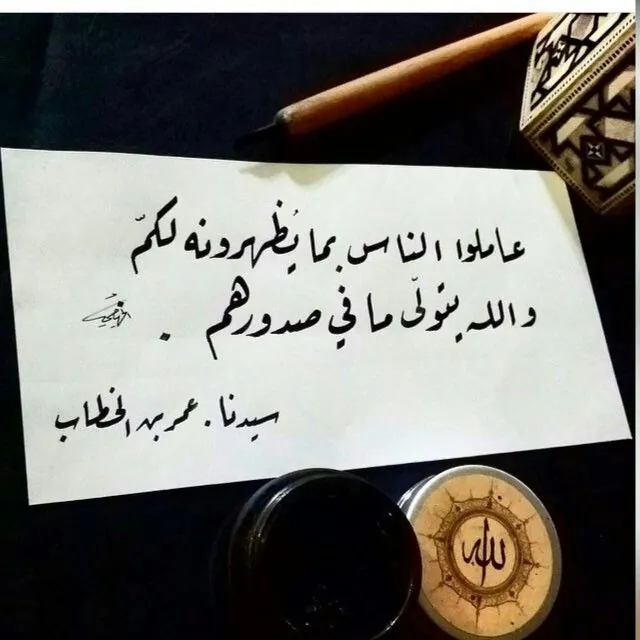 عاملوا الناس بما يُظهرونه لكمّ
والله يتولّى ما في صدورهم .
سيدنا . عمر بن الخطاب
الله